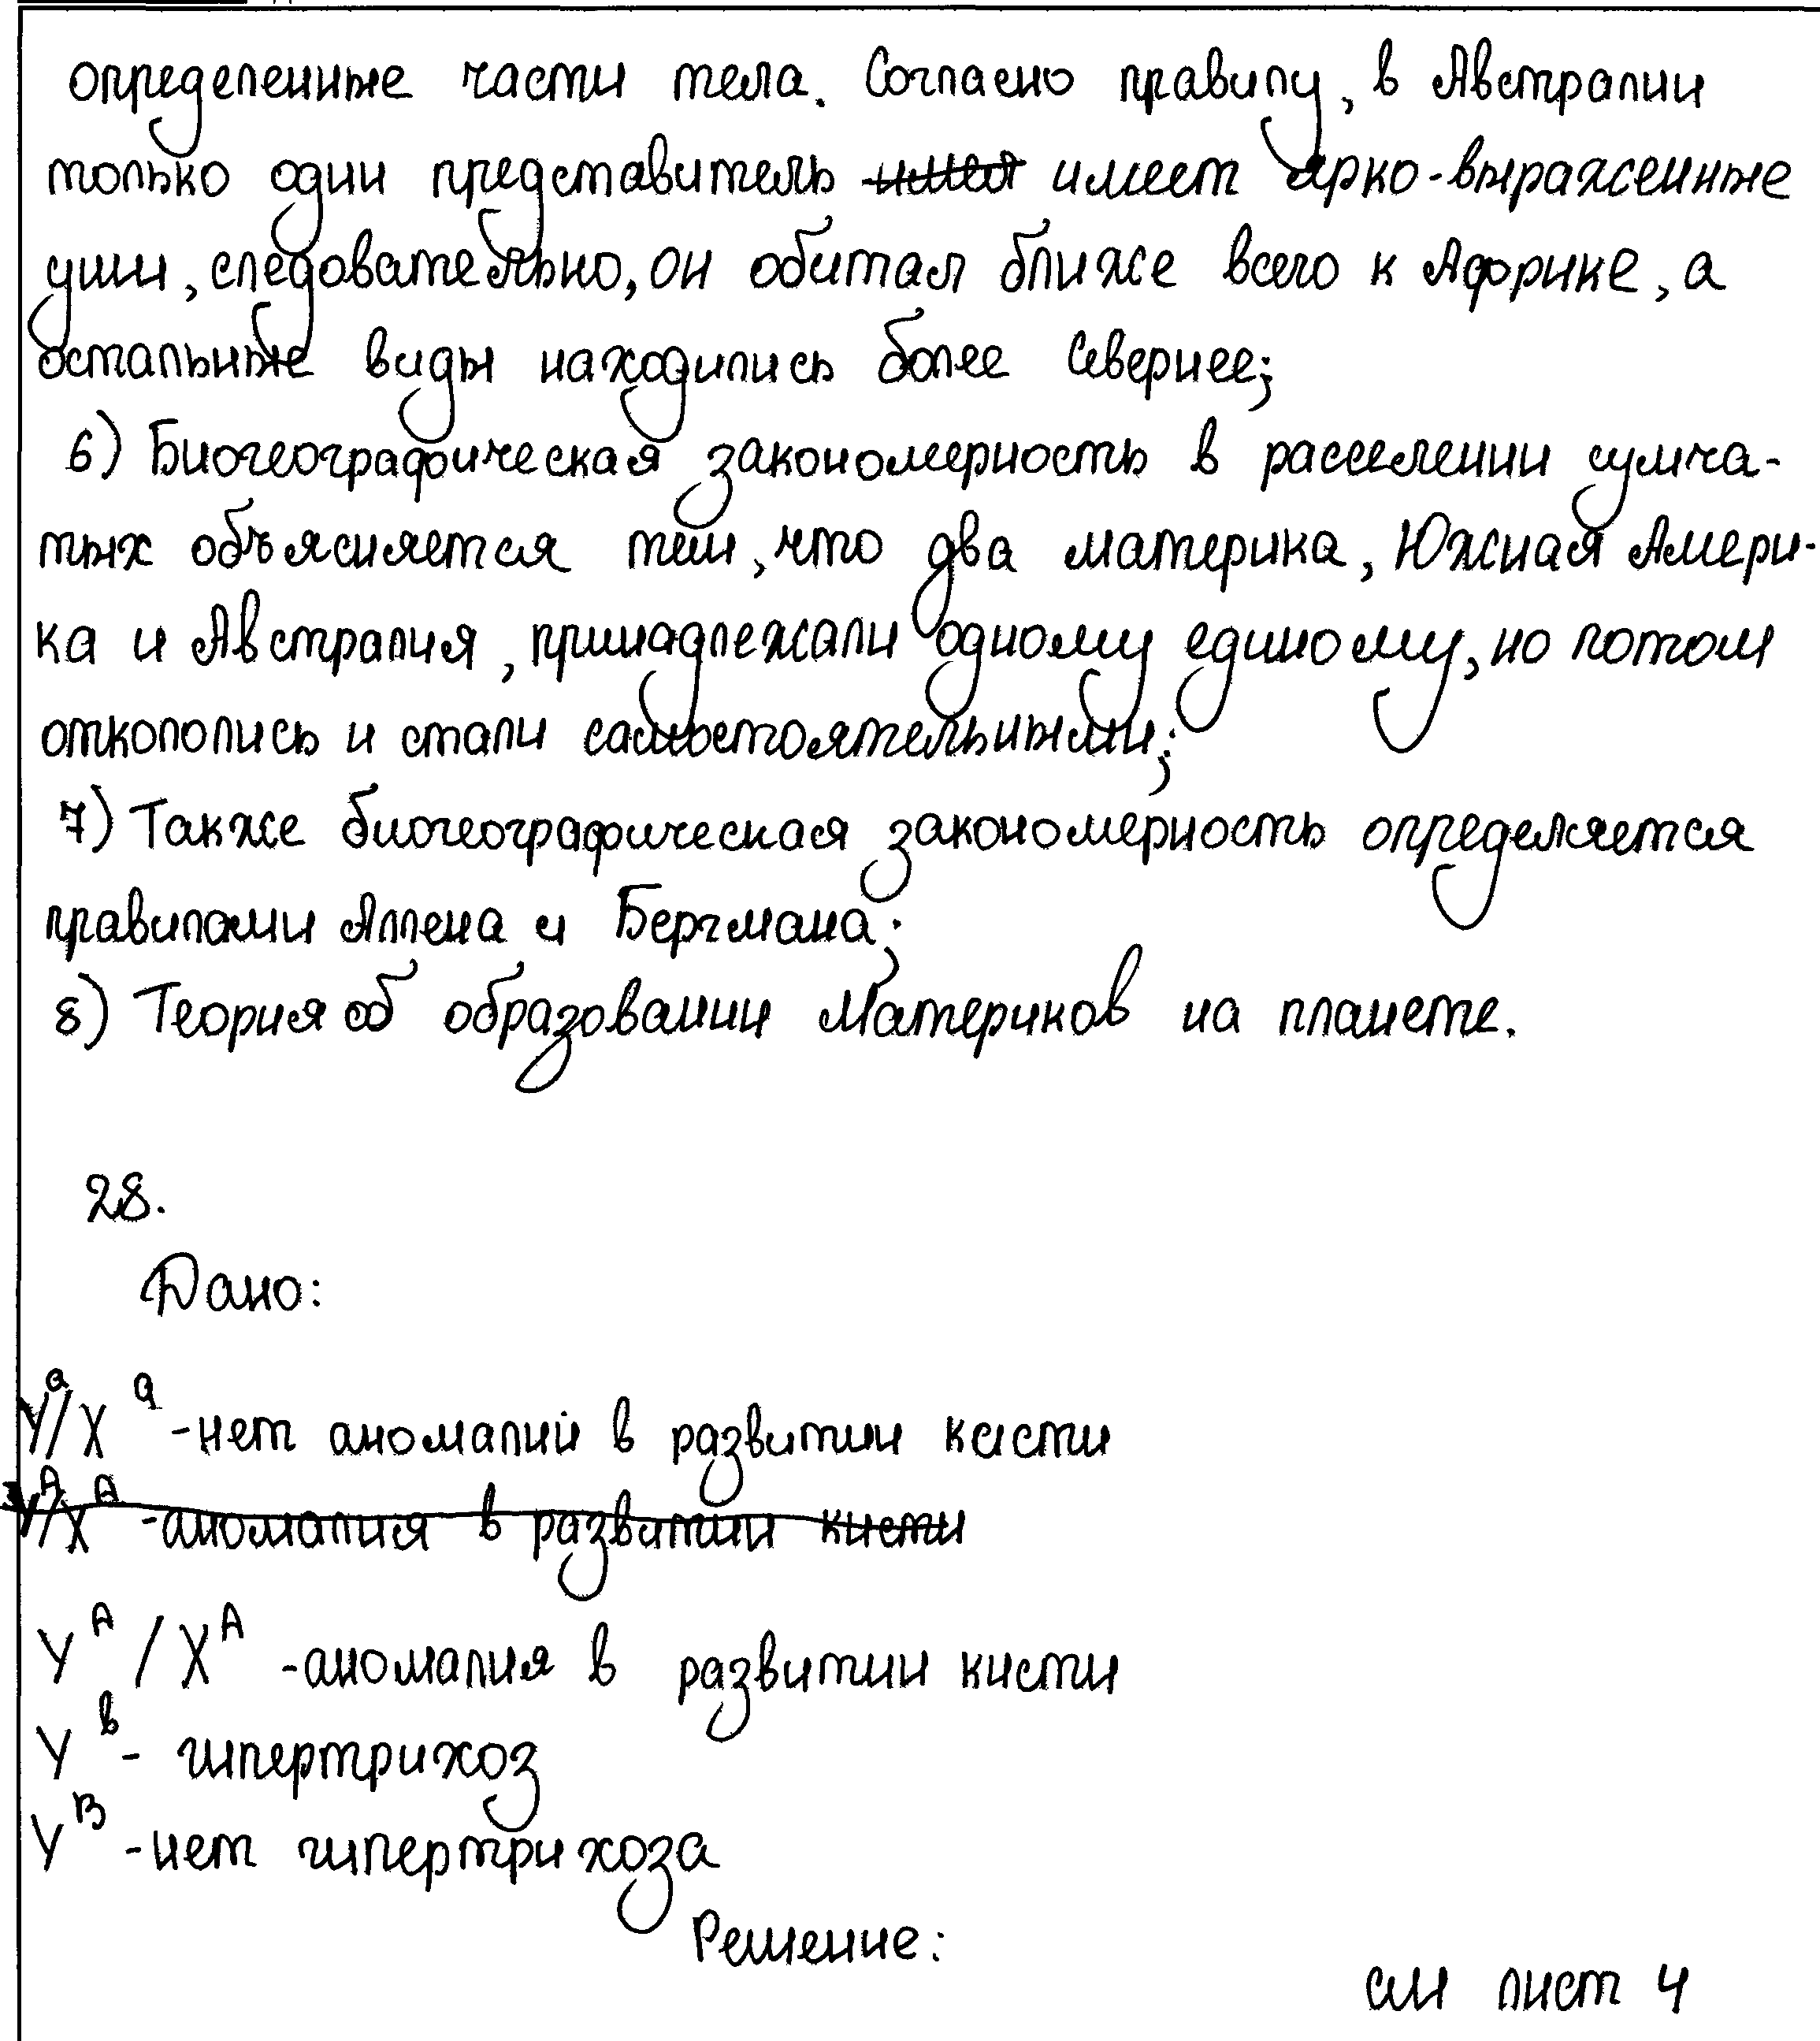 определенные части тела. Согласно правилу, в Австралии
только один представитель имея имеет ярко-выраженные
уши, следовательно, он обитал ближе всего к Африке, а
остальные виды находились более севернее;
6) Биогеографическая закономерность в расселении сумча-
тых объясняется тем, что два материка, Южная Амери-
ка и Австралия, принадлежали одному единому, но потом
откололись и стали самостоятельными;
7) Также биогеографическая закономерность определяется
правилами Аллена и Бергмана;
8) Теория об образовании материков на планете.
28.
Дано:
Yᵃ/Xᵃ -нет аномалий в развитии кисти
Yᴬ/Xᴬ -аномалия в развитии кисти
Yᴬ / Xᴬ -аномалия в развитии кисти
Yᵇ - гипертрихоз
Yᴮ -нет гипертрихоза
Решение:
см лист 4